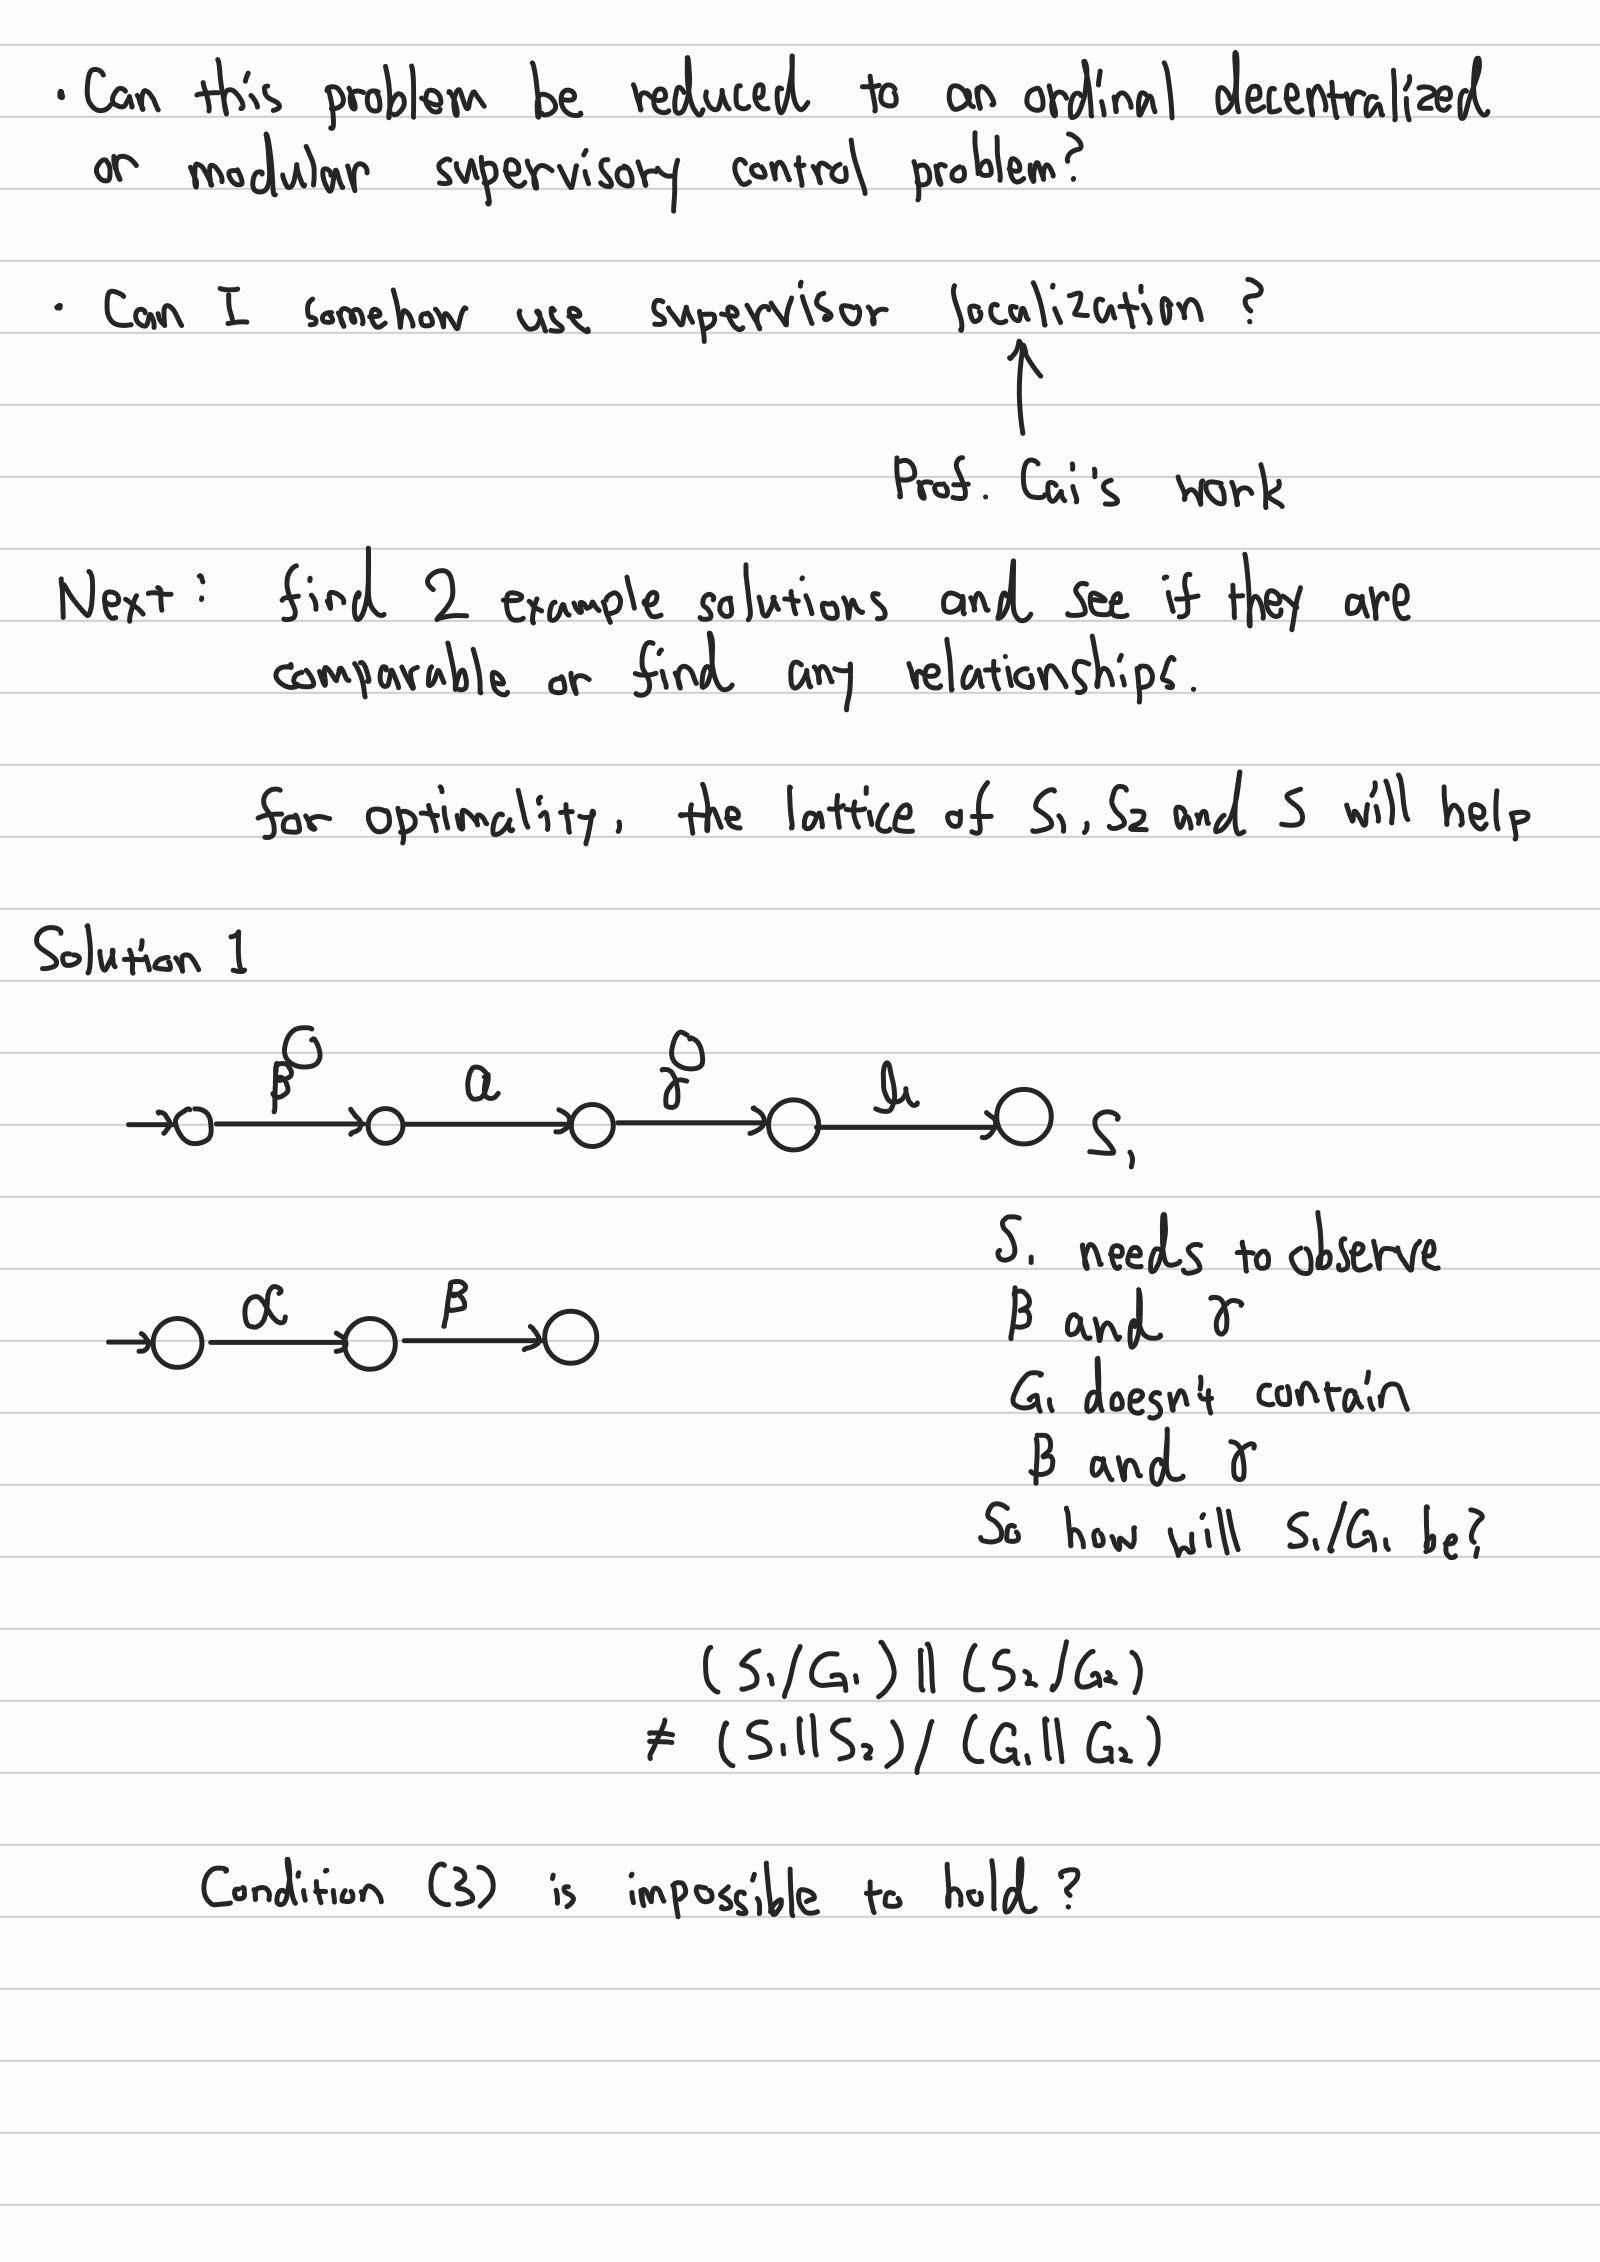 · Can this problem be reduced to an ordinal decentralized
or modular supervisory control problem?
· Can I somehow use supervisor localization?
Prof. Cai's work
Next: find 2 example solutions and see if they are
comparable or find any relationships.
for optimality, the lattice of S₁, S₂ and S will help
Solution 1
β a γ b
S₁
S₁ needs to observe
β and γ
α β
G₁ doesn't contain
β and γ
So how will S₁/G₁ be?
(S₁/G₁) || (S₂/G₂)
≠ (S₁||S₂) / (G₁||G₂)
Condition (3) is impossible to hold?